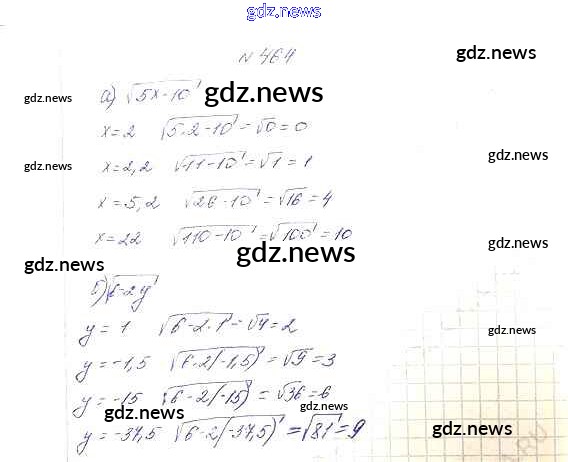 gdz.news
N 464
gdz.news
gdz.news
а) √5x-10
gdz.news
x=2 √5·2-10 = √0 = 0
gdz.news
gdz.news
x=2,2 √11-10 = √1 = 1
x=5,2 √26-10 = √16 = 4
x=22 √110-10 = √100 = 10
gdz.news
gdz.news
gdz.news
б) √6-2y
y = 1 √6-2·1 = √4 = 2
gdz.news
y = -1,5 √6-2(-1,5) = √9 = 3
y = -15 √6-2(-15) = √36 = 6
gdz.news
gdz.news
y = -37,5 √6-2(-37,5) = √81 = 9
gdz.news